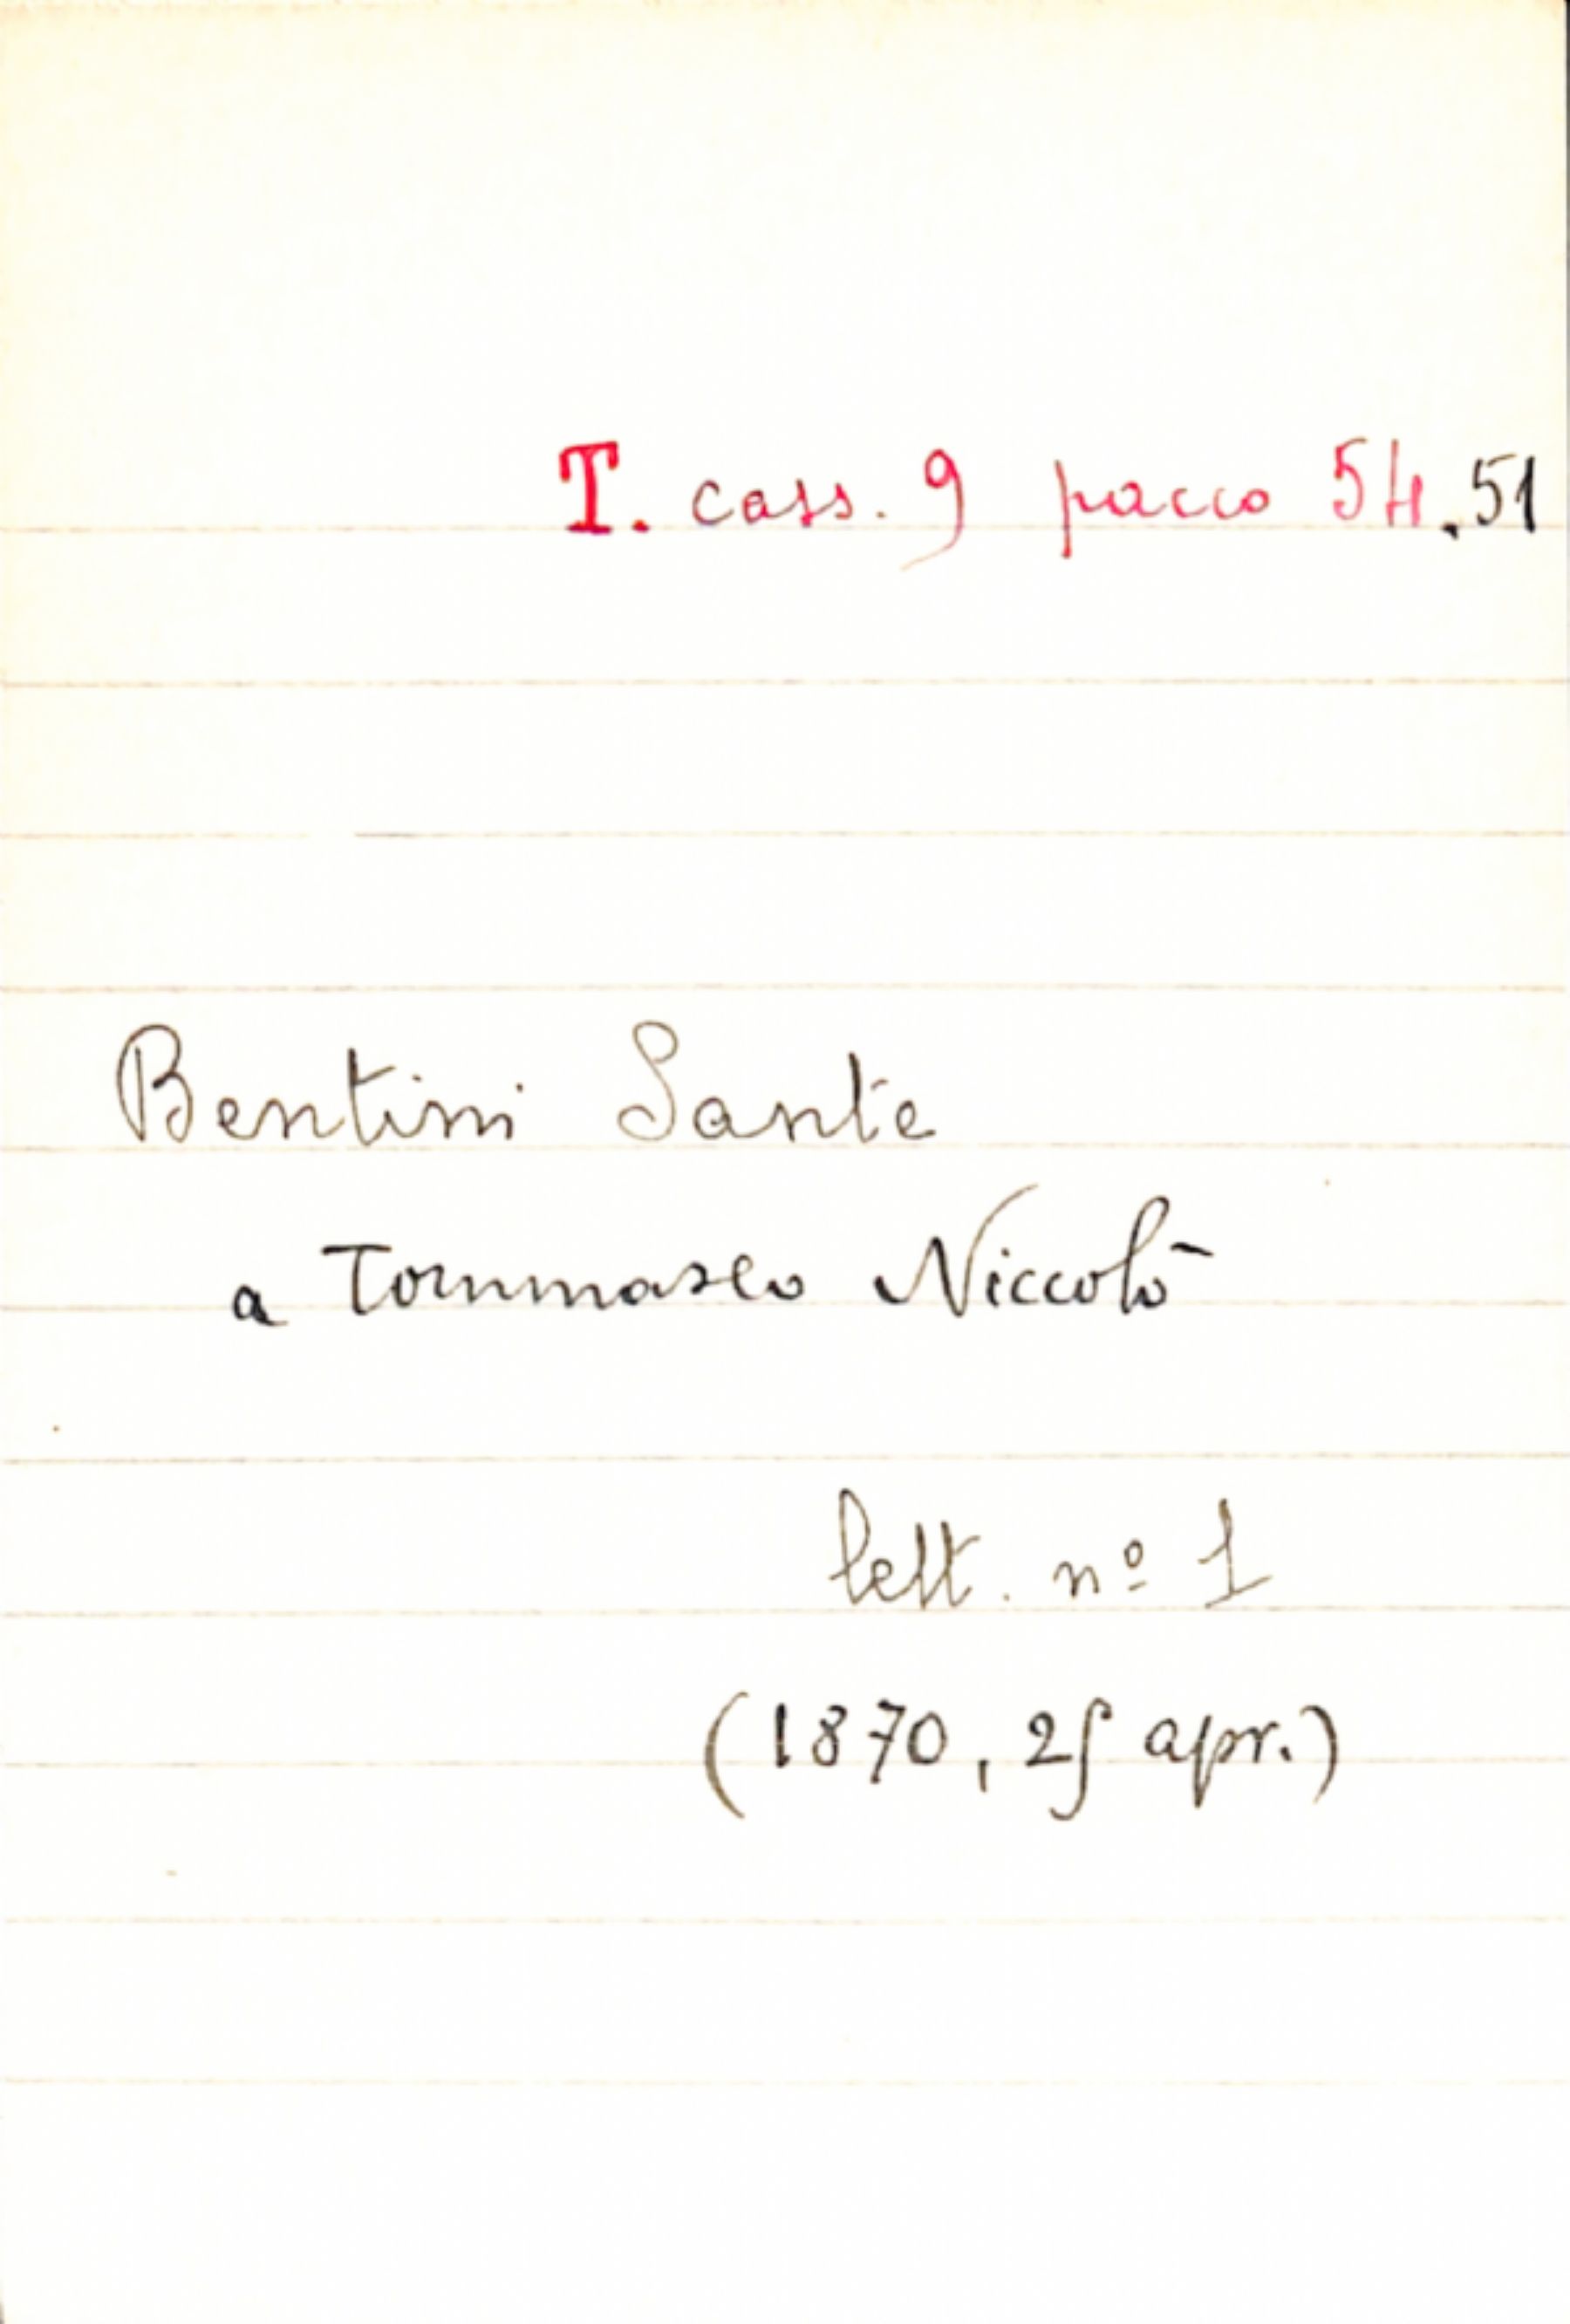 T. cass. 9 pacco 54.51
Bentini Sante
a Tommaseo Niccolò
lett. nº 1
(1870, 25 apr.)